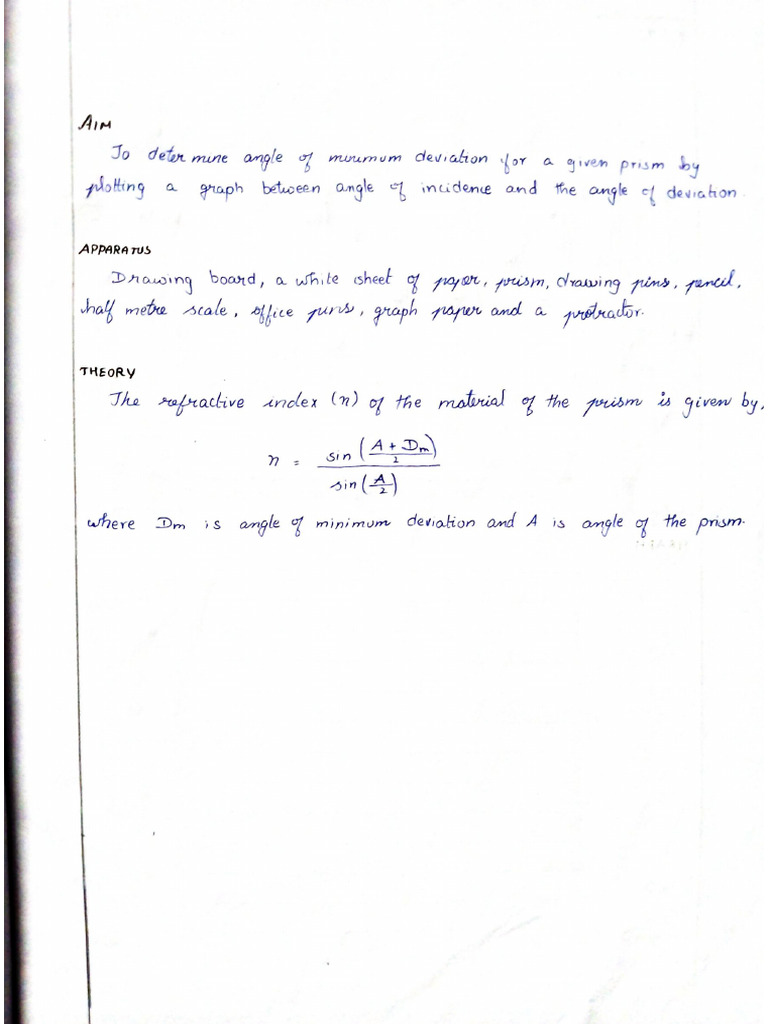 AIM
To determine angle of minimum deviation for a given prism by
plotting a graph between angle of incidence and the angle of deviation.
APPARATUS
Drawing board, a white sheet of paper, prism, drawing pins, pencil,
half metre scale, office pins, graph paper and a protractor.
THEORY
The refractive index (n) of the material of the prism is given by,
n = sin((A + Dm)/2) / sin(A/2)
where Dm is angle of minimum deviation and A is angle of the prism.